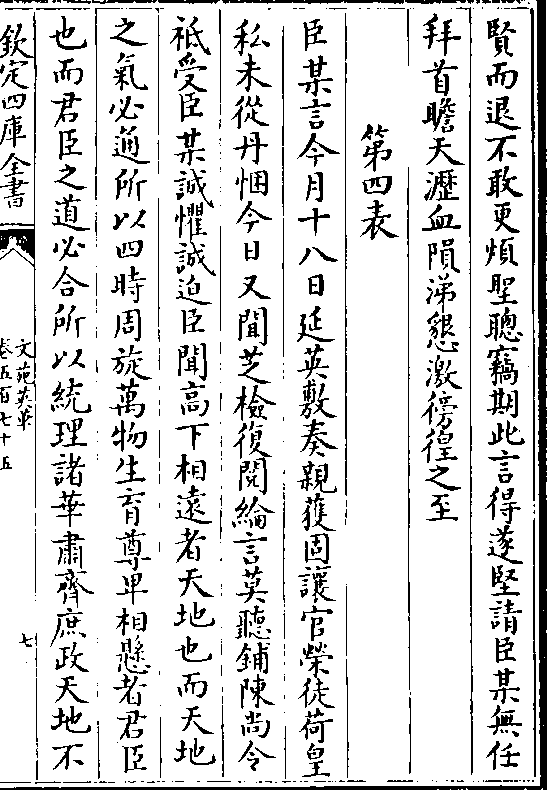 賢而退不敢更煩聖聰竊期此言得遂堅請臣某無任
拜首瞻天瀝血隕涕懇激徬徨之至
第四表
臣某言今月十八日延英敷奏親獲固讓官榮徒荷皇
私未從丹悃今日又聞芝檢復閱綸言莫聽鋪陳尚令
祗受臣某誠懼誠迫臣聞髙下相遠者天地也而天地
之氣必通所以四時周旋萬物生育尊卑相懸者君臣
也而君臣之道必合所以統理諸華肅齊庶政天地不
欽定四庫全書
文苑英華
卷五百七十五
七